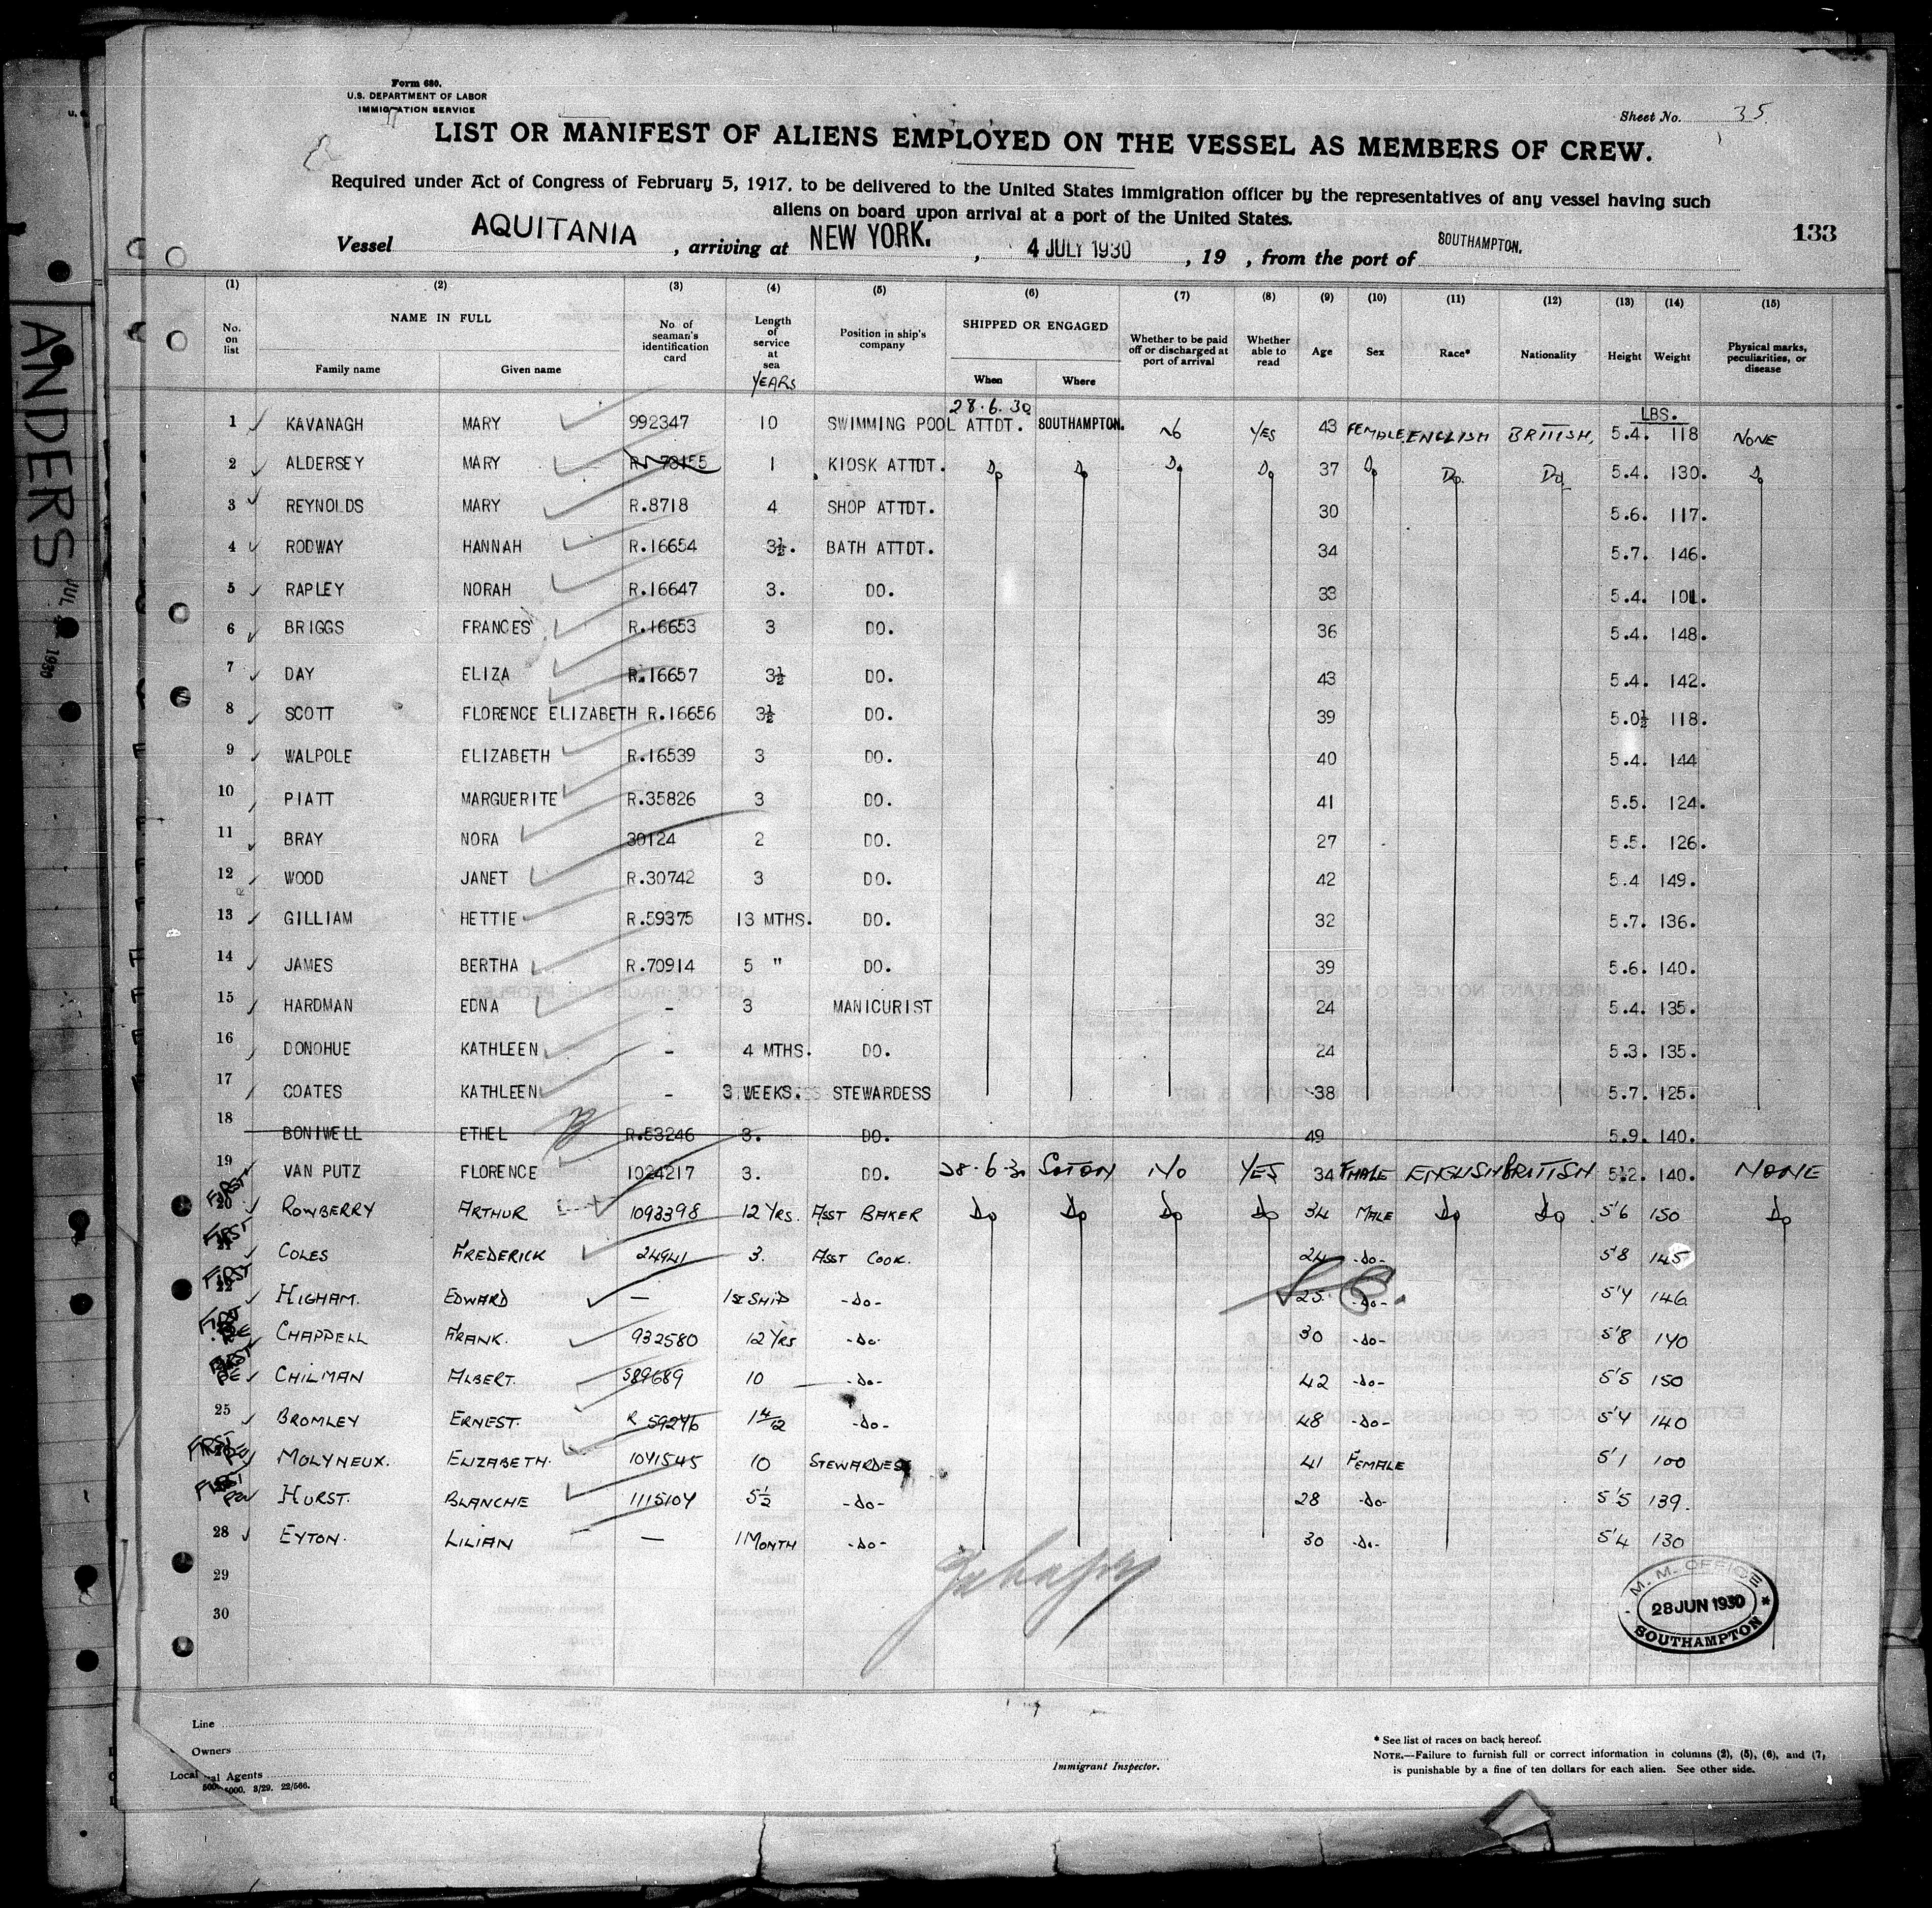 Form 680.
U.S. DEPARTMENT OF LABOR
IMMIGRATION SERVICE
Sheet No. 35.
LIST OR MANIFEST OF ALIENS EMPLOYED ON THE VESSEL AS MEMBERS OF CREW.
Required under Act of Congress of February 5, 1917, to be delivered to the United States immigration officer by the representatives of any vessel having such
aliens on board upon arrival at a port of the United States.
133
Vessel AQUITANIA, arriving at NEW YORK., 4 JULY 1930, 19 , from the port of SOUTHAMPTON.
ANDERS
JUL 1930
(1) (2) (3) (4) (5) (6) (7) (8) (9) (10) (11) (12) (13) (14) (15)
No. on list NAME IN FULL Family name Given name No of seaman's identification card Length of service at sea YEARS Position in ship's company SHIPPED OR ENGAGED When Where Whether to be paid off or discharged at port of arrival Whether able to read Age Sex Race* Nationality Height Weight Physical marks, peculiarities, or disease
LBS.
1 KAVANAGH MARY 992347 10 SWIMMING POOL ATTDT. 28.6.30 SOUTHAMPTON. No YES 43 FEMALE ENGLISH BRITISH, 5.4. 118 NONE
2 ALDERSEY MARY 1 KIOSK ATTDT. Do Do Do Do 37 Do Do. Do. 5.4. 130. Do
3 REYNOLDS MARY R.8718 4 SHOP ATTDT. 30 5.6. 117.
4 RODWAY HANNAH R.16654 3½. BATH ATTDT. 34 5.7. 146.
5 RAPLEY NORAH R.16647 3. DO. 33 5.4. 101.
6 BRIGGS FRANCES R.16653 3 DO. 36 5.4. 148.
7 DAY ELIZA R.16657 3½ DO. 43 5.4. 142.
8 SCOTT FLORENCE ELIZABETH R.16656 3½ DO. 39 5.0½ 118.
9 WALPOLE ELIZABETH R.16539 3 DO. 40 5.4. 144
10 PIATT MARGUERITE R.35826 3 DO. 41 5.5. 124.
11 BRAY NORA 30124 2 DO. 27 5.5. 126.
12 WOOD JANET R.30742 3 DO. 42 5.4 149.
13 GILLIAM HETTIE R.59375 13 MTHS. DO. 32 5.7. 136.
14 JAMES BERTHA R.70914 5 " DO. 39 5.6. 140.
15 HARDMAN EDNA - 3 MANICURIST 24 5.4. 135.
16 DONOHUE KATHLEEN - 4 MTHS. DO. 24 5.3. 135.
17 COATES KATHLEEN - 3 WEEKS. STEWARDESS 38 5.7. 125.
18 BONIWELL ETHEL R.53246 3. DO. 49 5.9. 140.
19 VAN PUTZ FLORENCE 1024217 3. DO. 28.6.30 SOTON NO YES 34 FMALE ENGLISH BRITISH 5.2. 140. NONE
FIRST 20 ROWBERRY ARTHUR 1093398 12 YRS. ASST BAKER Do Do Do Do 34 MALE Do Do 5'6 150 Do
FIRST 21 COLES FREDERICK 24941 3. ASST COOK. 24 -do- 5'8 145
FIRST 22 HIGHAM. EDWARD — 1st SHIP -do- 25 -do- 5'4 146
FIRST CHAPPELL FRANK. 932580 12 YRS -do- 30 -do- 5'8 140
FIRST CHILMAN ALBERT. 589689 10 -do- 42 -do- 5'5 150
25 BROMLEY ERNEST. R 59276 1 4/12 -do- 48 -do- 5'4 140
FIRST MOLYNEUX. ELIZABETH. 1041545 10 STEWARDESS 41 FEMALE 5'1 100
FIRST HURST. BLANCHE 1115104 5½ -do- 28 -do- 5'5 139.
28 EYTON. LILIAN — 1 MONTH -do- 30 -do- 5'4 130
29
30
M. M. OFFICE
28 JUN 1930
SOUTHAMPTON
Line
Owners
Local Agents
5000. 3/29. 22/566.
Immigrant Inspector.
* See list of races on back hereof.
NOTE.—Failure to furnish full or correct information in columns (2), (5), (6), and (7,
is punishable by a fine of ten dollars for each alien. See other side.